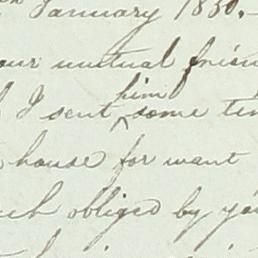 January 1850.-
our mutual frien
I sent him some ti
house for want
uch obliged by yo